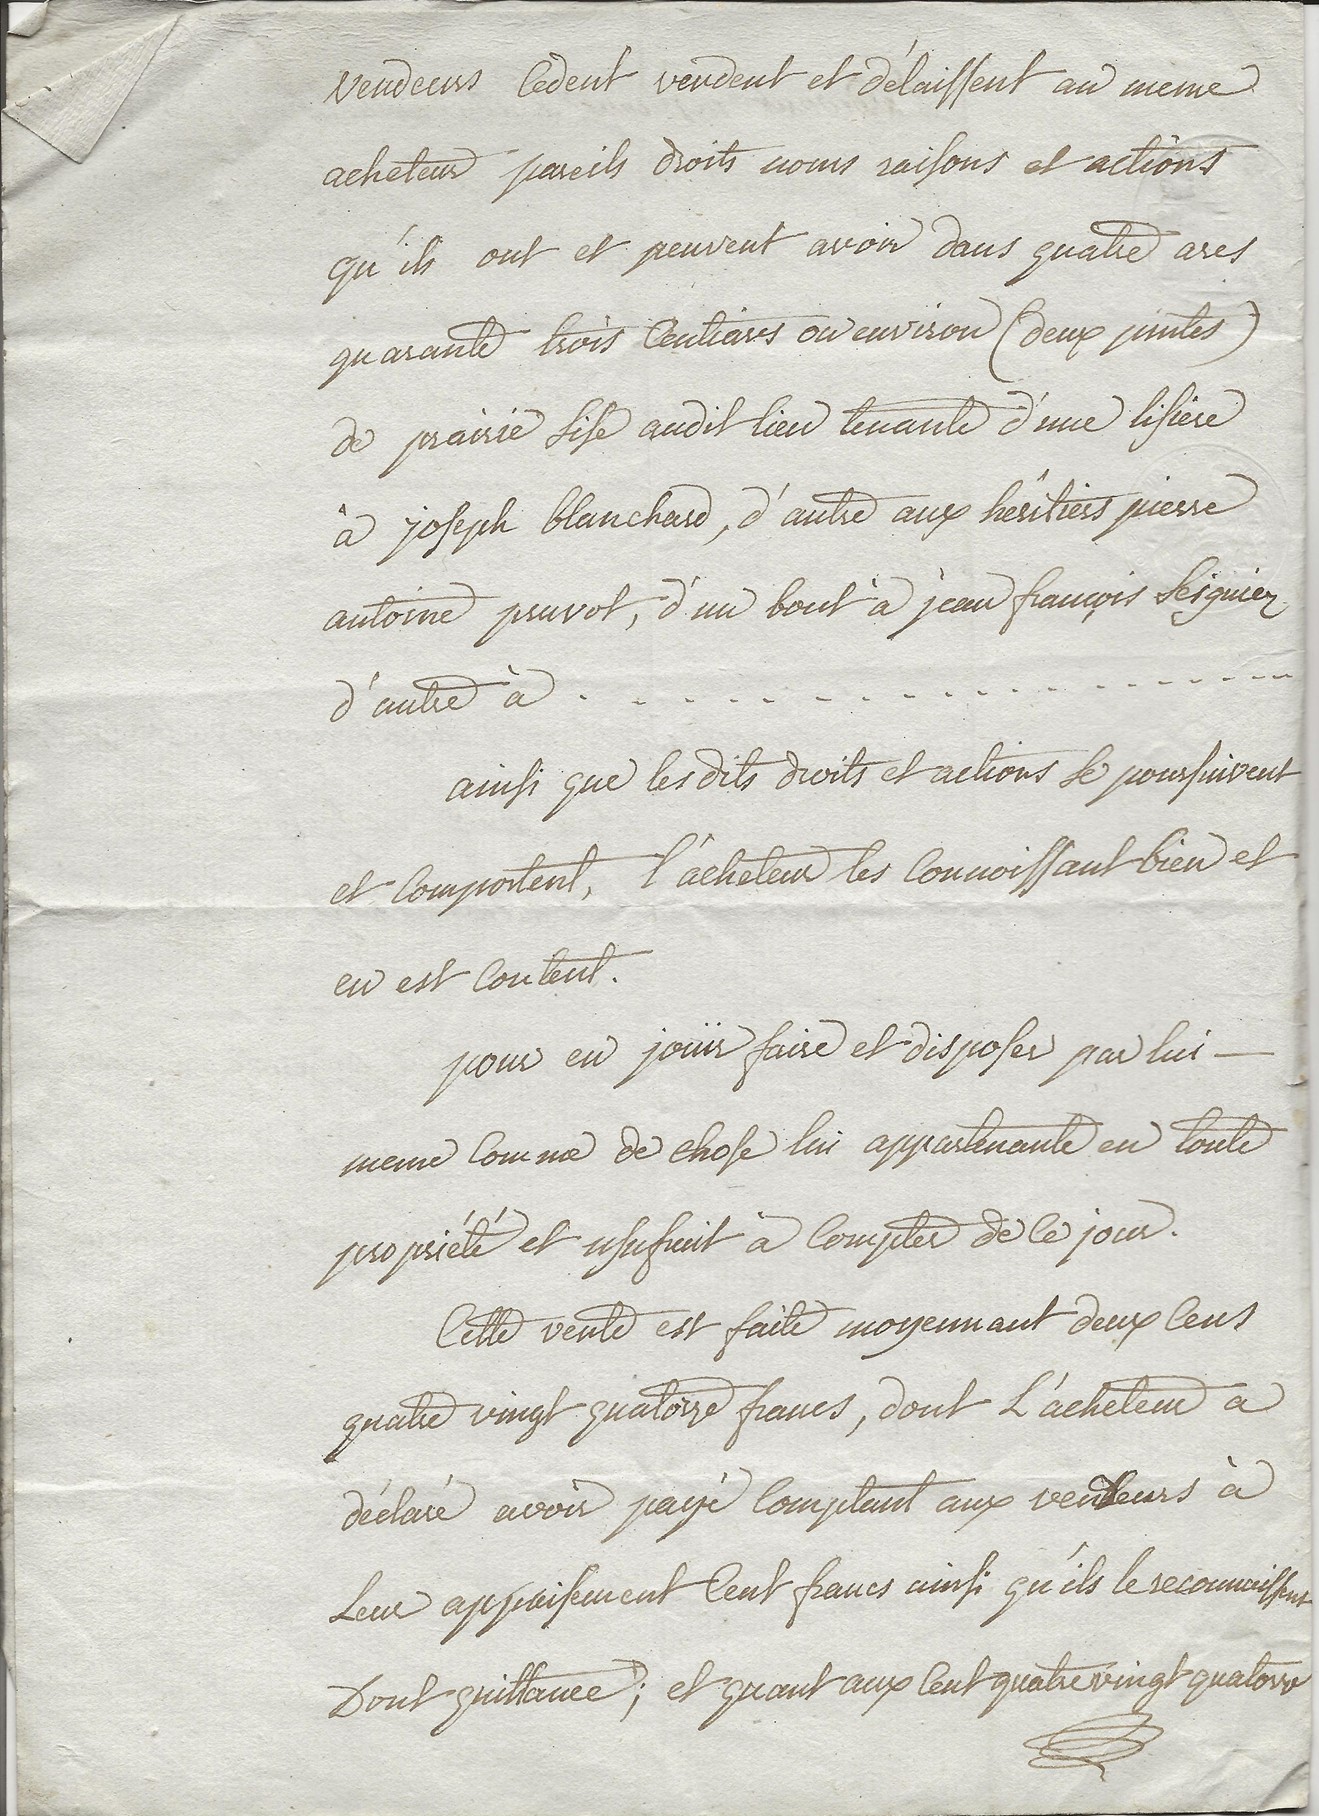 vendeurs cèdent vendent et délaissent au meme
acheteur pareils droits noms raisons et actions
qu'ils ont et peuvent avoir dans quatre ares
quarante trois centiars ou environ (deux pintes)
de prairie sise audit lieu tenante d'une lisiere
à joseph blanchard, d'autre aux héritiers pierre
antoine pruvot, d'un bout à jean françois Seignier
d'autre à . - - - - - - - - - - - - - - - -
ainsi que les dits droits et actions se poursuivent
et comportent, l'acheteur les connoissant bien et
en est content.
pour en jouir faire et disposer par lui —
meme comme de chose lui appartenante en toute
propriété et usufruit à compter de ce jour.
Cette vente est faite moyennant deux cens
quatre vingt quatorze francs, dont L'acheteur a
déclaré avoir payé comptant aux vendeurs à
Leur appaisement cent francs ainsi qu'ils le reconnaissent
Dont quittance ; et quant aux cent quatre vingt quatorze